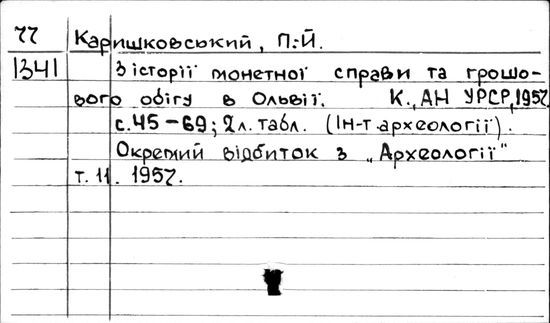 77 Каришковський, П.Й.
1341 З історії монетної справи та грошо-
вого обігу в Ольвії. К., АН УРСР, 1957.
с. 45-69; 2 л. табл. (Ін-т археології).
Окремий відбиток з „Археології"
т. 11. 1957.